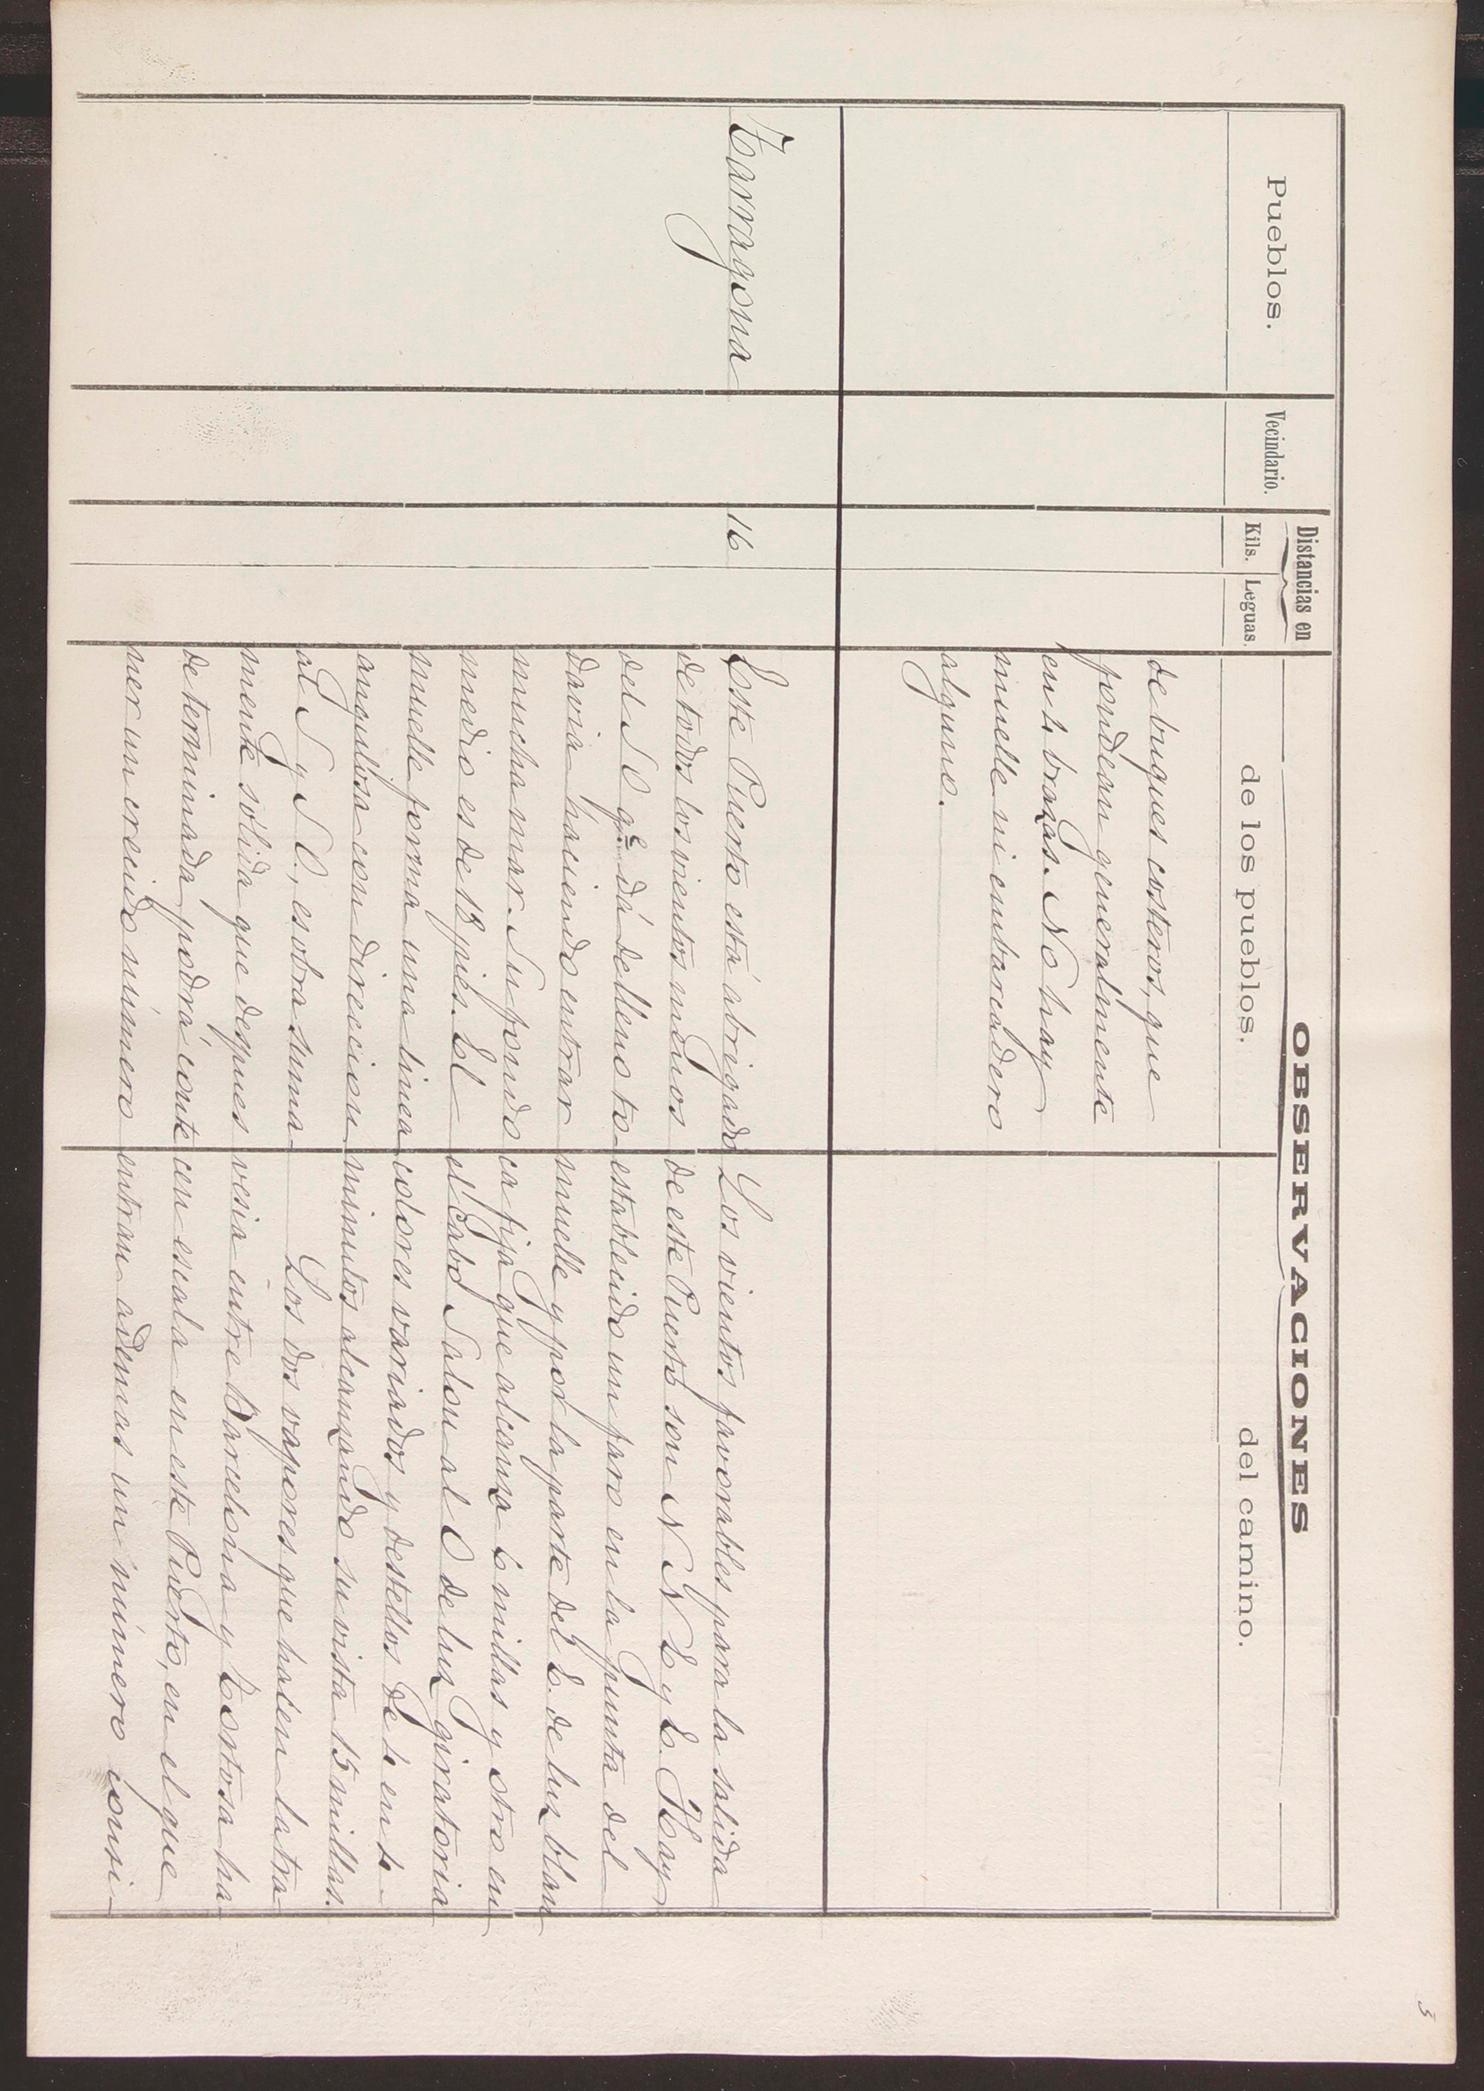 3
OBSERVACIONES
Distancias en
Pueblos.
Vecindario.
Kils.
Leguas.
de los pueblos.
del camino.
de buques costeros, que
fondean generalmente
en 4 brazas. No hay
muelle ni embarcadero
alguno.
Tarragona
16
Este Puerto está abrigado
de todos los vientos menos
del S O qe. dá de lleno to-
davia haciendo entrar
mucha mar. Su fondo
medio es de 18 pies. El
muelle forma una linea
angulosa con direccion
al S y S O, es obra suma-
mente solida que despues
de terminada podrá conte
ner un crecido número
Los vientos favorables para la salida
de este Puerto son N N E y E. Hay
establecido un faro en la punta del
muelle y por la parte del E. de luz blan
ca fija que alcanza 6 millas y otro en
el Cabo Salou al O de luz giratoria
colores variados y destellos de 4 en 4
minutos alcanzando su vista 15 millas.
Los dos vapores que hacen la tra-
vesia entre Barcelona y Tortosa ha-
cen escala en este Puerto, en el que
entran ademas un número consi-